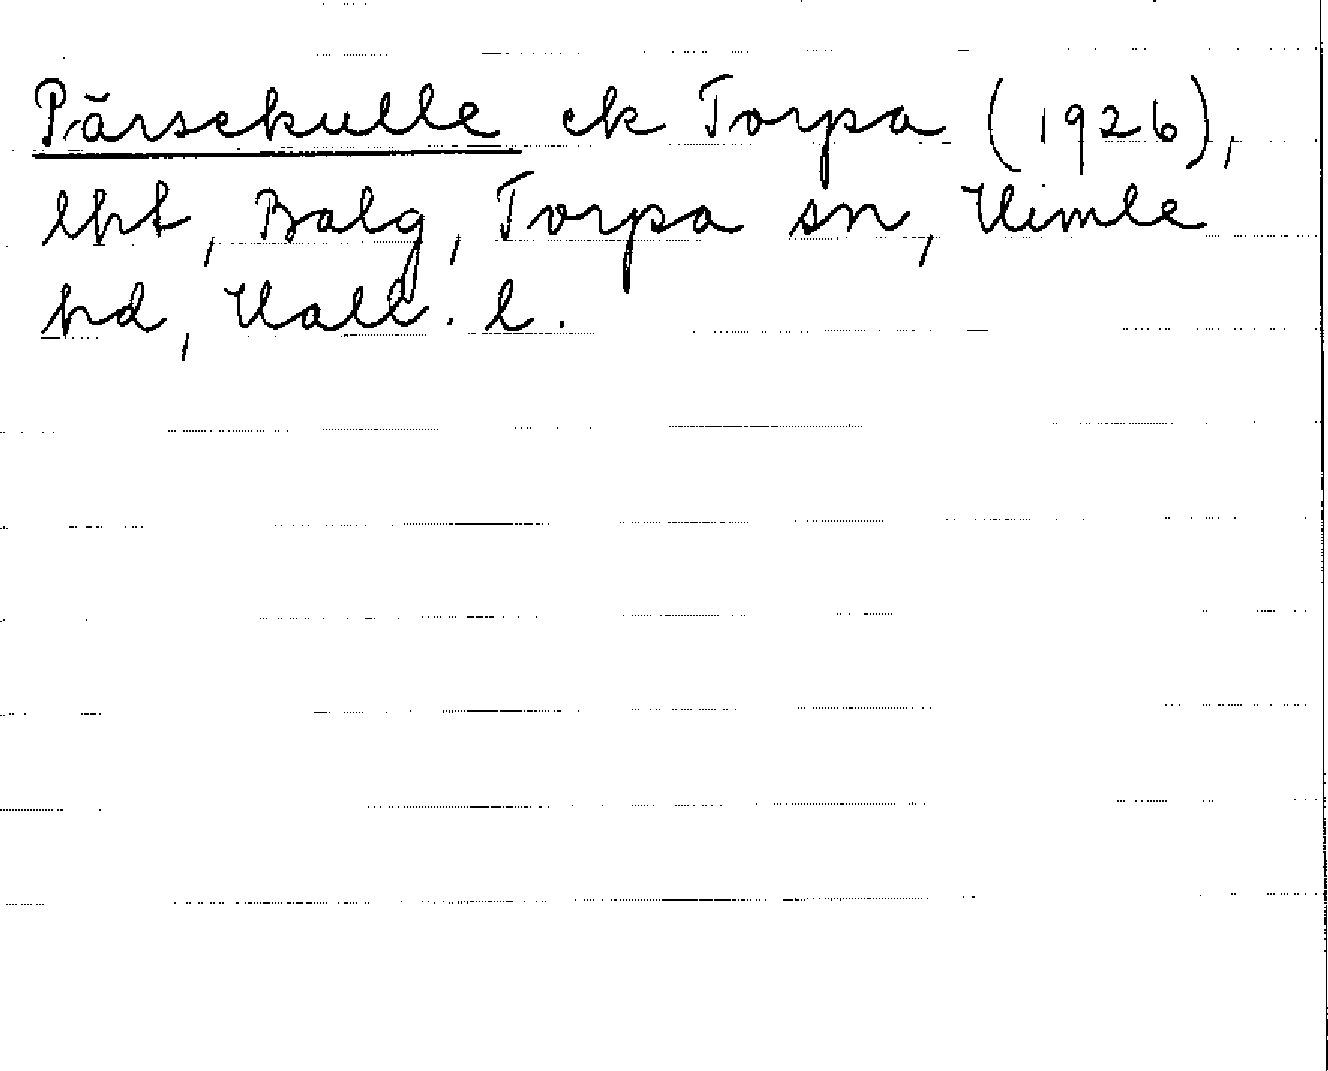 Pärsekulle ek Torpa (1926),
lht, Balg, Torpa sn, Himle
hd, Hall. l.